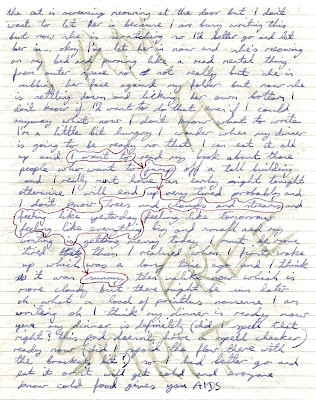 the cat is screaming meowing at the door but I don't
want to let her in because I am busy writing this
but now she is scratching so I'd better go and let
her in... okay I've let her in now and she's meowing
on my bed and purring like a mad metal thing
from outer space no not really but she is
rubbing her face against my folder but now she
is settling down and licking her own bottom I
don't know if I'd want to do that even if I could
anyway what now I don't know what to write
I'm a little bit hungry I wonder when my dinner
is going to be ready so that I can eat it all
up and I want to read my book about those
people who want to jump off a tall building
and I really next have an early night tonight
otherwise I will end up very tired probably and
I don't know trees and clouds and streams and
feeling like yesterday feeling like tomorrow
feeling like everything big and small and my
writing is getting messy today I must be more
tired than I realised when I first woke
up which was a long time ago and I think
it was sunny then unlike now which is
more cloudy but there might be sun later
oh what a load of pointless nonsense I am
writing oh I think my dinner is ready now
yeah my dinner is definitely (did I spell that
right? this pad doesn't have a spell checker)
ready now (did I spoil the flow there with
the bracket bit?) so I had better go and
eat it or it will get cold and everyone
know cold food gives you AIDS